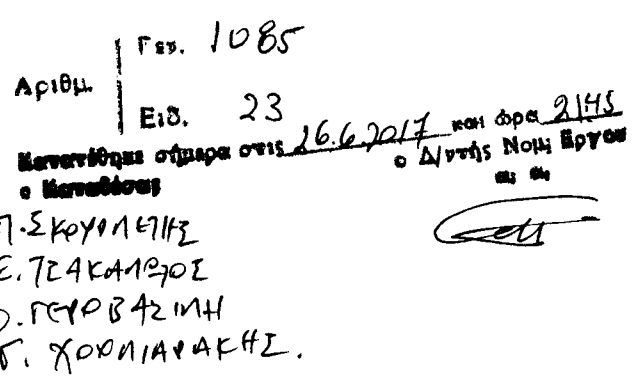 Αριθμ.
Γεν. 1085
Ειδ. 23
Κατατέθηκε σήμερα στις 26.6.2017 και ώρα 2145
ο Καταθέσας
ο Δ/ντής Νομ. Έργου
Π. ΣΚΟΥΡΛΕΤΗΣ
Ε. ΤΣΑΚΑΛΩΤΟΣ
Ο. ΓΕΡΟΒΑΣΙΛΗ
Γ. ΧΟΥΛΙΑΡΑΚΗΣ.